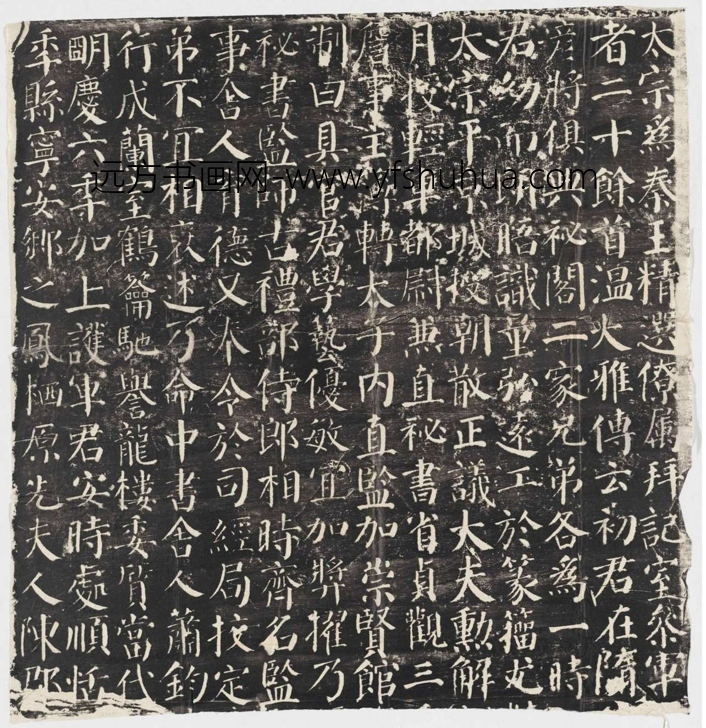 太宗為秦王精選僚屬拜記室參軍
者二十餘首溫大雅傳云初君在隋
彥將俱典祕閣二家兄弟各為一時
君幼而朗晤識量弘遠工於篆籀尤
太宗平京城授朝散正議大夫勳解
月授輕車都尉兼直祕書省貞觀三
詹事主簿轉太子內直監加崇賢館
制曰具官君學藝優敏宜加獎擢乃
祕書監師古禮部侍郎相時齊名監
事舍人君德又奉令於司經局校定
弟不宜相褒述乃命中書舍人蕭鈞
行成蘭室鶴籥馳譽龍樓委質當代
明慶六年加上護軍君安時處順恬
季縣寧安鄉之鳳栖原先夫人陳郡
远方书画网-www.yfshuhua.com